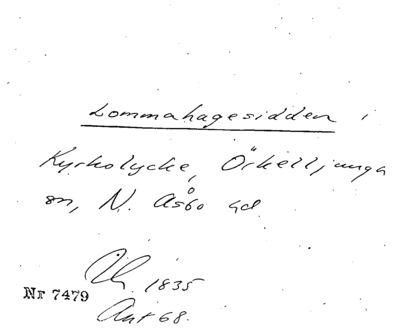 Lommahagesidden i
Kyrkolycke, Örkelljunga
sn, N. Åsbo hd.
1835
Nr 7479
Ant 68.